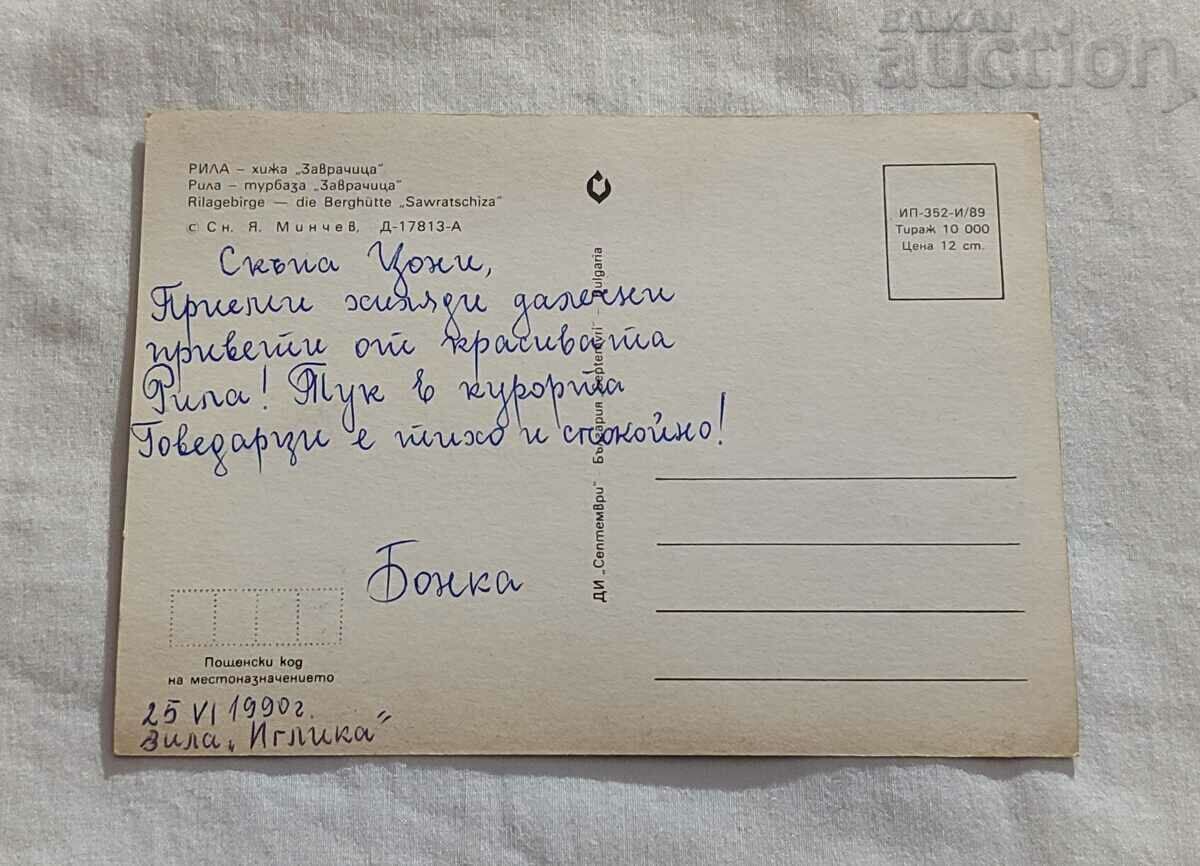 BALKAN
auction
РИЛА – хижа „Заврачица“
Рила – турбаза „Заврачица“
Rilagebirge — die Berghütte „Sawratschiza“
© Сн. Я. Минчев, Д-17813-А
ИП-352-И/89
Тираж 10 000
Цена 12 ст.
Скъпа Цони,
Приеми хиляди далечни
привети от красивата
Рила! Тук в курорта
Говедарци е тихо и спокойно!
Бонка
ДИ „Септември“ – България „Septemvri“ – Bulgaria
Пощенски код
на местоназначението
25 VI 1990г.
вила „Иглика“